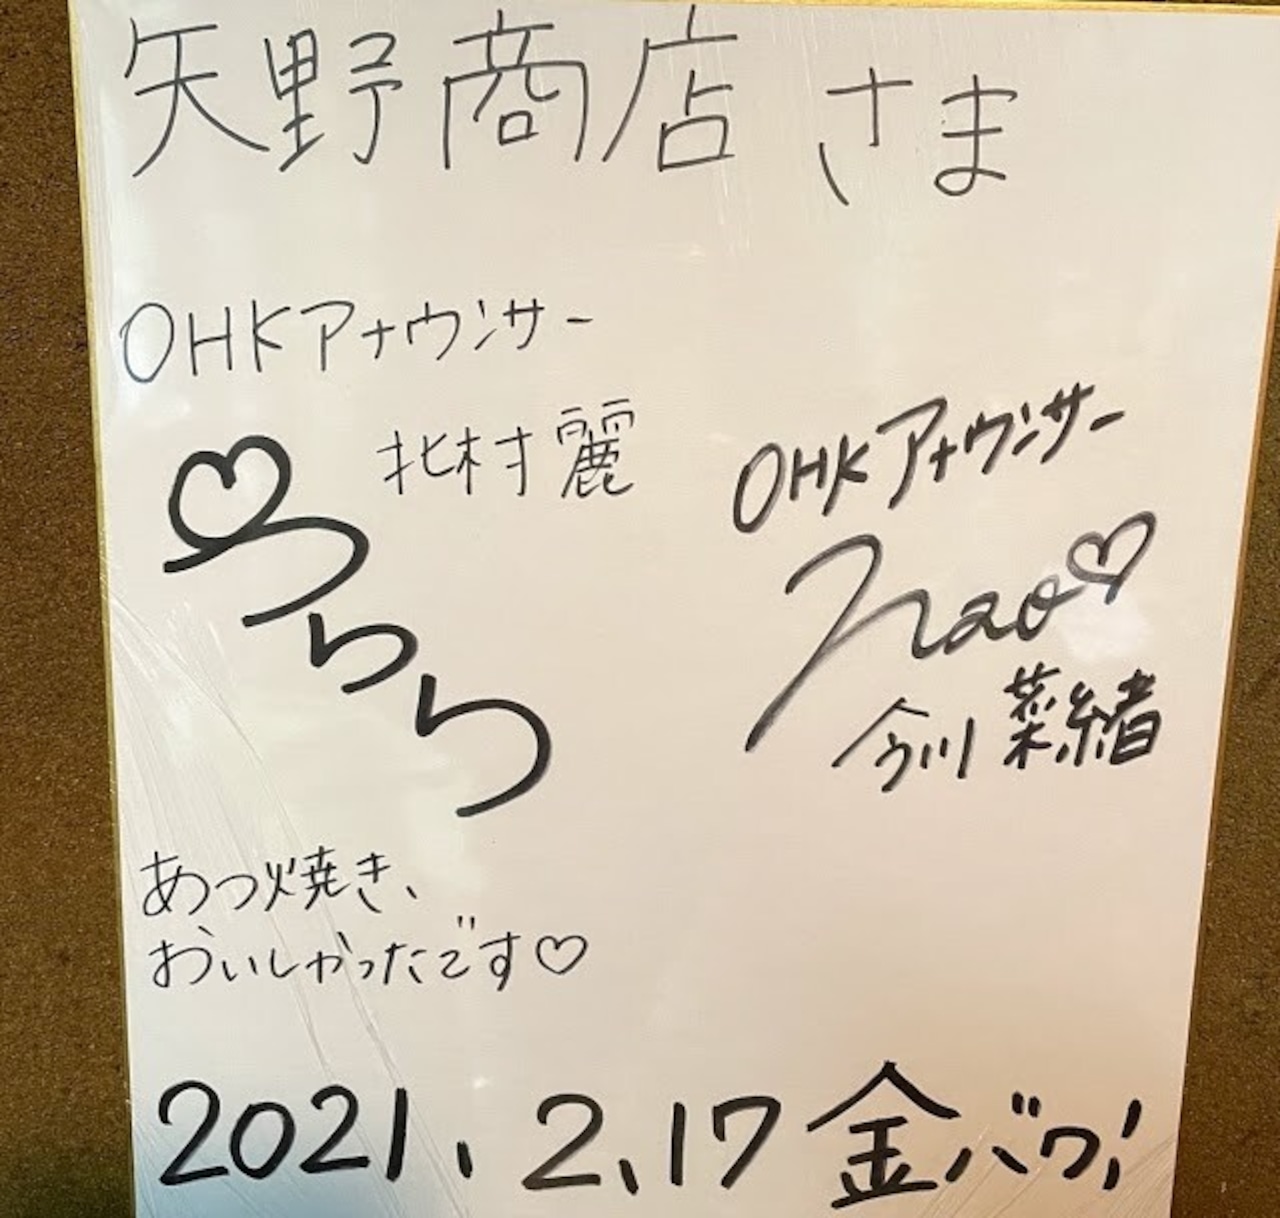 矢野商店さま
OHKアナウンサー
北村麗
うらら
OHKアナウンサー
nao♡
今川菜緒
あつ焼き、
おいしかったです♡
2021.2.17 金バク!